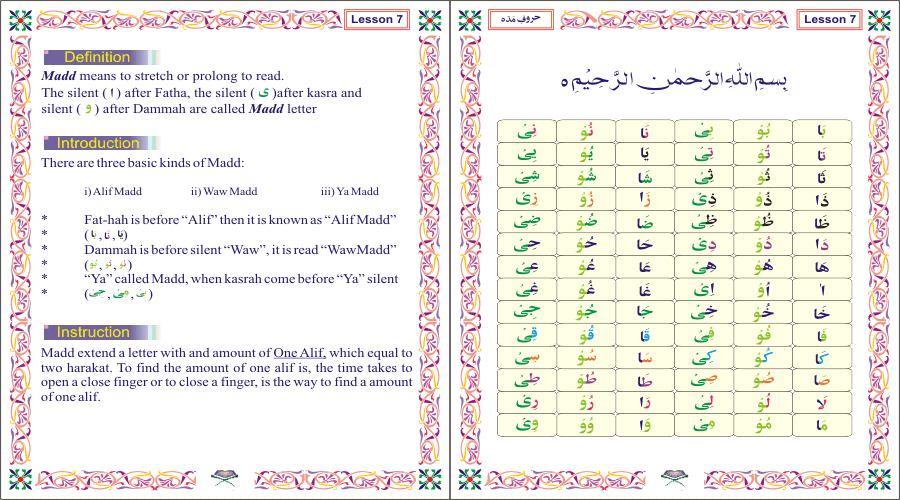 Lesson 7
Definition
Madd means to stretch or prolong to read.
The silent ( ا ) after Fatha, the silent ( ى )after kasra and
silent ( و ) after Dammah are called Madd letter
Introduction
There are three basic kinds of Madd:
i) Alif Madd ii) Waw Madd iii) Ya Madd
* Fat-hah is before “Alif” then it is known as “Alif Madd”
*
* Dammah is before silent “Waw”, it is read “WawMadd”
*
* “Ya” called Madd, when kasrah come before “Ya” silent
*
Instruction
Madd extend a letter with and amount of One Alif, which equal to
two harakat. To find the amount of one alif is, the time takes to
open a close finger or to close a finger, is the way to find a amount
of one alif.
حروفِ مَدہ Lesson 7
بِسْمِ اللّٰهِ الرَّحْمٰنِ الرَّحِيْمِ ه
بَا بُوْ بِىْ نَا نُوْ نِىْ
تَا تُوْ تِىْ يَا يُوْ يِىْ
ثَا ثُوْ ثِىْ شَا شُوْ شِىْ
ذَا ذُوْ ذِىْ زَا زُوْ زِىْ
ظَا ظُوْ ظِىْ ضَا ضُوْ ضِىْ
دَا دُوْ دِىْ حَا حُوْ حِىْ
هَا هُوْ هِىْ عَا عُوْ عِىْ
اٰ اُوْ اِىْ غَا غُوْ غِىْ
خَا خُوْ خِىْ جَا جُوْ جِىْ
فَا فُوْ فِىْ قَا قُوْ قِىْ
كَا كُوْ كِىْ سَا سُوْ سِىْ
صَا صُوْ صِىْ طَا طُوْ طِىْ
لَا لُوْ لِىْ رَا رُوْ رِىْ
مَا مُوْ مِىْ وَا وُوْ وِىْ